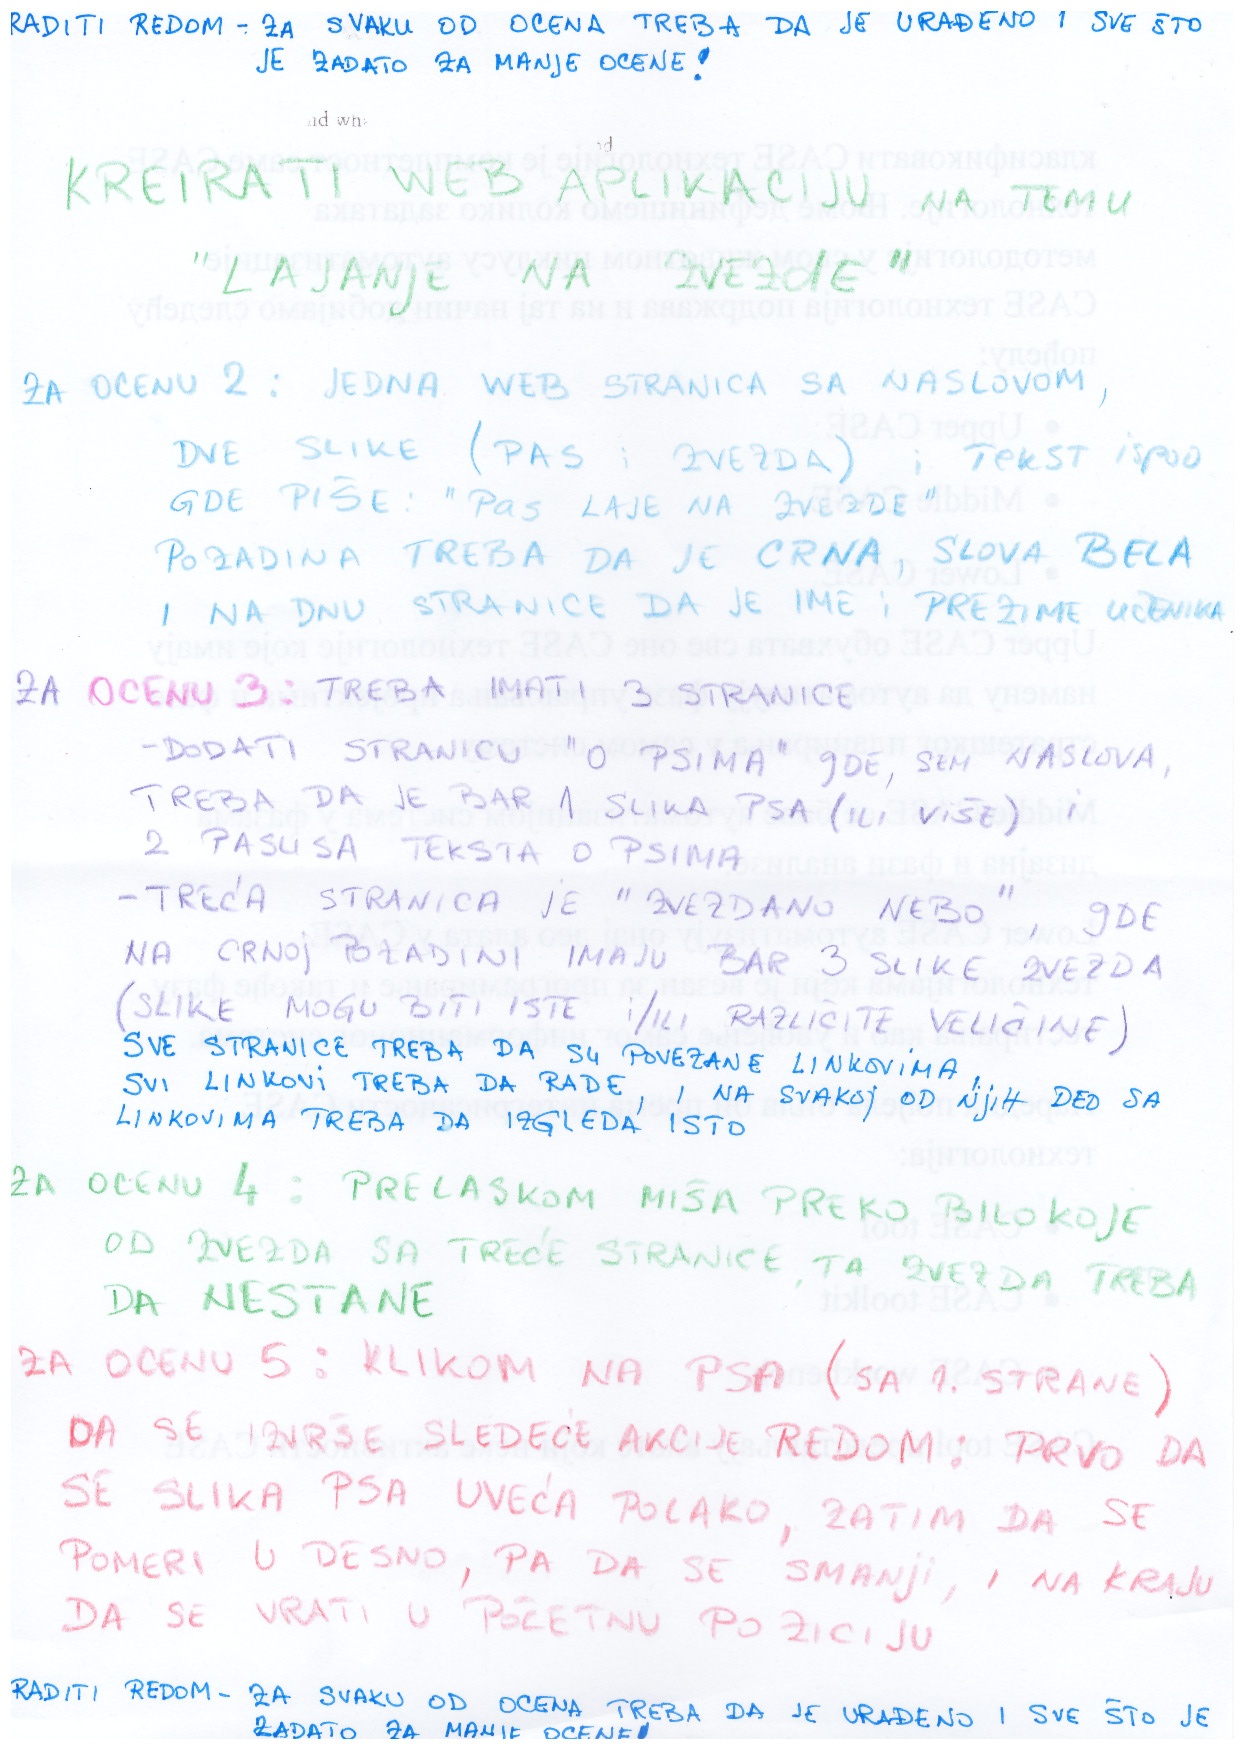 RADITI REDOM - ZA SVAKU OD OCENA TREBA DA JE URAĐENO I SVE ŠTO
JE ZADATO ZA MANJE OCENE!
KREIRATI WEB APLIKACIJU NA TEMU
"LAJANJE NA ZVEZDE"
ZA OCENU 2: JEDNA WEB STRANICA SA NASLOVOM,
DVE SLIKE (PAS i ZVEZDA) i TEKST ISPOD
GDE PIŠE: "Pas LAJE NA ZVEZDE"
POZADINA TREBA DA JE CRNA, SLOVA BELA
I NA DNU STRANICE DA JE IME i PREZIME UČENIKA
ZA OCENU 3: TREBA IMATI 3 STRANICE
-DODATI STRANICU "O PSIMA" gDE, SEM NASLOVA,
TREBA DA JE BAR 1 SLIKA PSA (ILI VIŠE) i
2 PASUSA TEKSTA O PSIMA
-TREĆA STRANICA JE "ZVEZDANO NEBO", gDE
NA CRNOj POZADINI IMAJU BAR 3 SLIKE ZVEZDA
(SLIKE MOGU BITI ISTE i/ILI RAZLIČITE VELIČINE)
SVE STRANICE TREBA DA SU POVEZANE LINKOVIMA,
SVI LINKOVI TREBA DA RADE, I NA SVAKOj OD NjIH DEO SA
LINKOVIMA TREBA DA IZGLEDA ISTO
ZA OCENU 4: PRELASKOM MIŠA PREKO BILO KOJE
OD ZVEZDA SA TREĆE STRANICE, TA ZVEZDA TREBA
DA NESTANE
ZA OCENU 5: KLIKOM NA PSA (SA 1. STRANE)
DA SE IZVRŠE SLEDEĆE AKCIJE REDOM: PRVO DA
SE SLIKA PSA UVEĆA POLAKO, ZATIM DA SE
POMERI U DESNO, PA DA SE SMANJI, I NA KRAJU
DA SE VRATI U POČETNU POZICIJU
RADITI REDOM - ZA SVAKU OD OCENA TREBA DA JE URAĐENO I SVE ŠTO JE
ZADATO ZA MANJE OCENE!